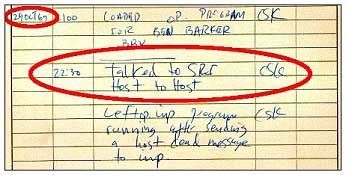 29 OCT 69 2100 LOADED OP. PROGRAM CSK
FOR BEN BARKER
BBN
22:30 Talked to SRI CSK
Host to Host
Left op. imp program CSK
running after sending
a host dead message
to imp